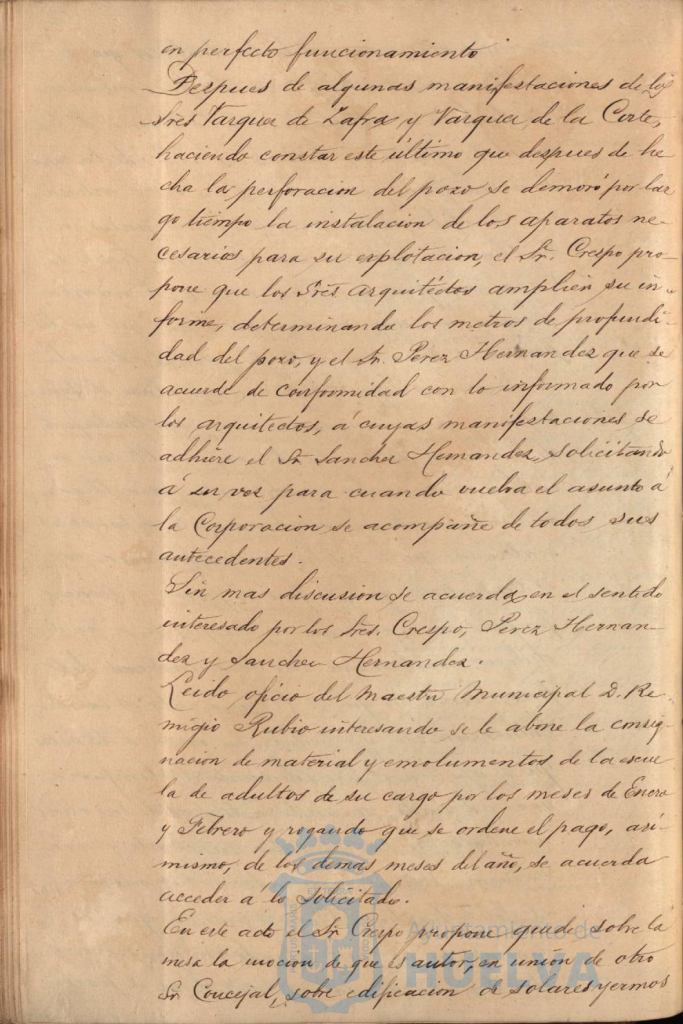 en perfecto funcionamiento
Despues de algunas manifestaciones de los
Sres Vazquez de Zafra y Vazquez de la Corte,
haciendo constar este último que despues de he
cha la perforacion del pozo se demoró por lar
go tiempo la instalacion de los aparatos ne-
cesarios para su explotacion, el Sr. Crespo pro-
pone que los Sres arquitéctos amplien su in-
forme, determinando los metros de profundi-
dad del pozo, y el Sr. Perez Hernandez que se
acuerde de conformidad con lo informado por
los arquitectos, á cuyas manifestaciones se
adhiere el Sr Sanchez Hernandez, solicitando
á su vez para cuando vuelva el asunto á
la Corporacion se acompañe de todos sus
antecedentes.
Sin mas discusion se acuerda en el sentido
interesado por los Sres. Crespo, Perez Hernan-
dez y Sanchez Hernandez.
Leido oficio del Maestro Municipal D. Re-
migio Rubio interesando se le abone la consig-
nacion de material y emolumentos de la escue
la de adultos de su cargo por los meses de Enero
y Febrero y rogando que se ordene el pago, así-
mismo, de los demas meses del año, se acuerda
acceder á lo solicitado.
En este acto el Sr Crespo propone quede sobre la
mesa la mocion de que es autor, en unión de otro
Sr Concejal, sobre edificacion de solares yermos
Ayuntamiento de
HUELVA